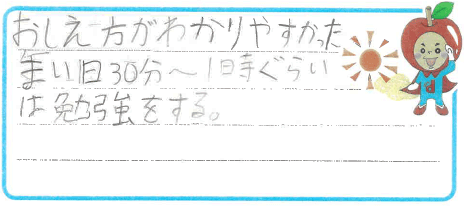 おしえ方がわかりやすかった
まい日30分～1時ぐらい
は勉強をする。
d